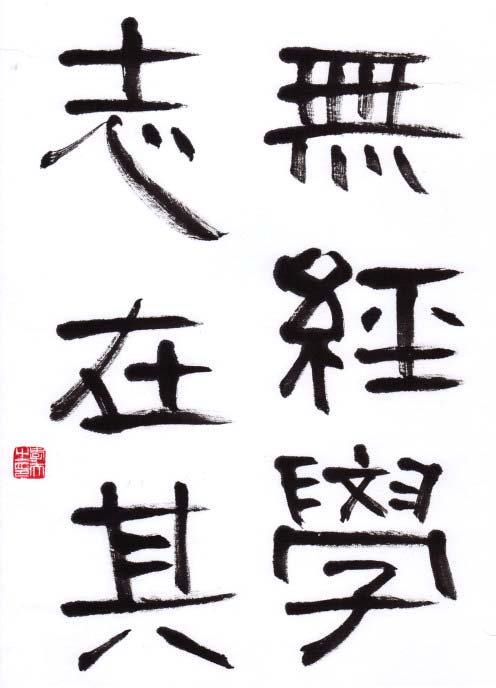 無經學
志在其